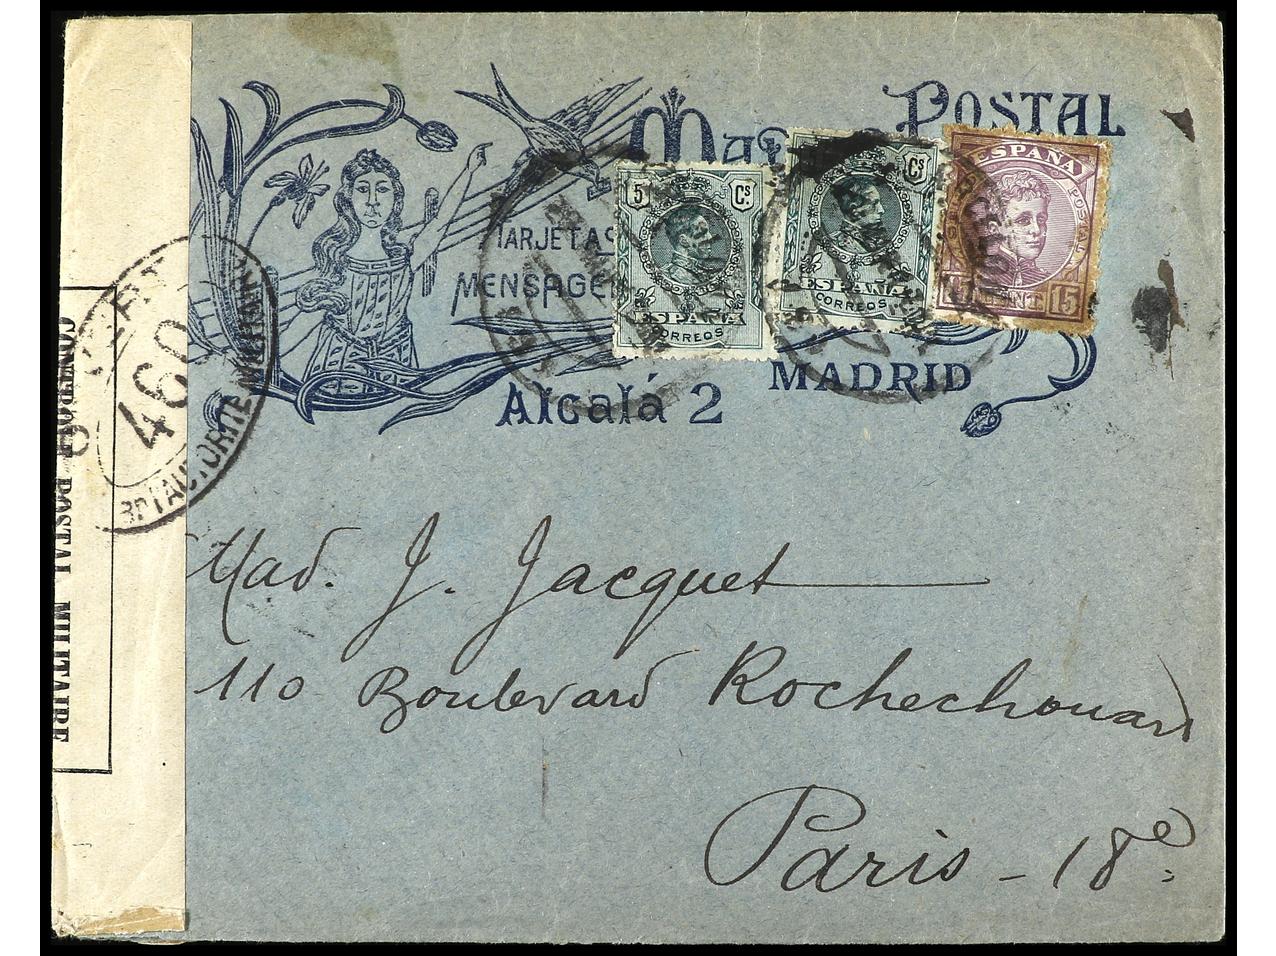 POSTAL
TARJETAS
MENSAGE
5 Cs
ESPAÑA
CORREOS
Cs
ESPAÑA
CORREOS
ESPAÑA
POSTAL
15 CENT 15
Alcalá 2
MADRID
460
AUTORITE MILITAIRE
CONTROLE POSTAL MILITAIRE
Mad. J. Jacquet
110 Boulevard Rochechouard
Paris - 18e